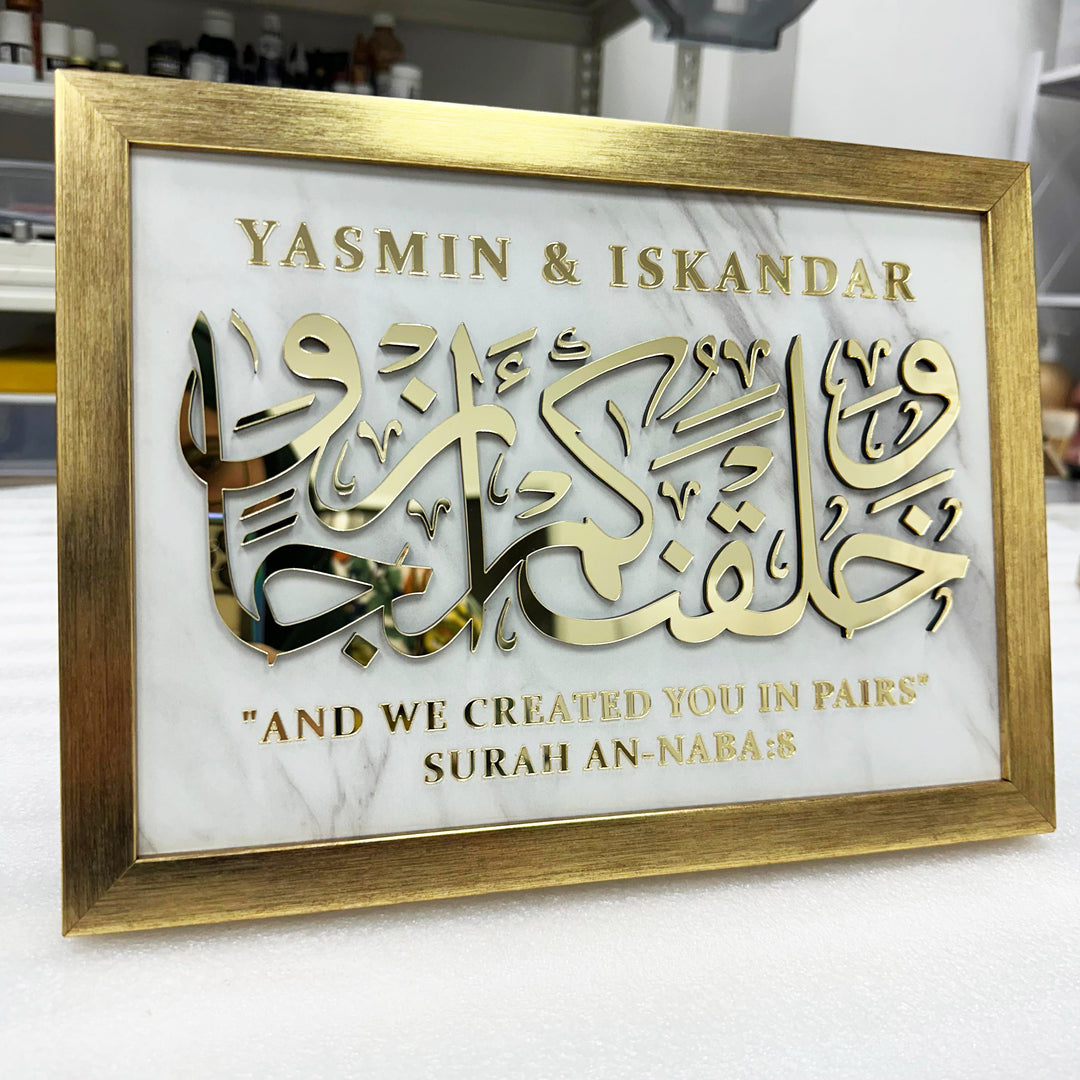 YASMIN & ISKANDAR
وَخَلَقْنَٰكُمْ أَزْوَٰجًا
"AND WE CREATED YOU IN PAIRS"
SURAH AN-NABA:8